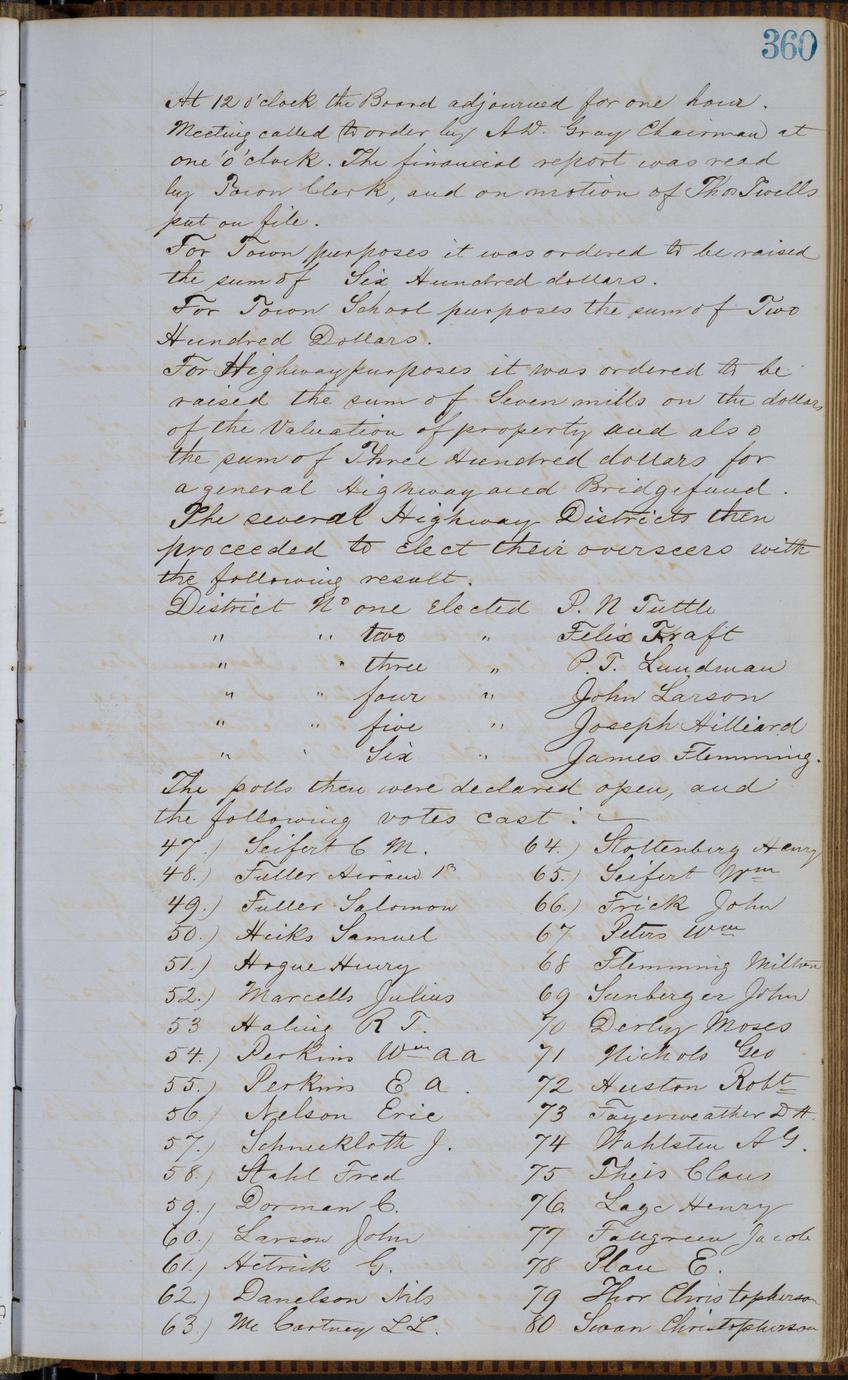 360
At 12 o'clock the Board adjourned for one hour.
Meeting called (to order by A.W. Gray Chairman) at
one 'o'clock. The financial report was read
by Town Clerk, and on motion of Thos Twells
put on file.
For Town purposes it was ordered to be raised
the sum of Six Hundred dollars.
For Town School purposes the sum of Two
Hundred Dollars.
For Highway purposes it was ordered to be
raised the sum of Seven mills on the dollars
of the Valuation of property and also
the sum of Three Hundred dollars for
a general Highway and Bridgefund.
The several Highway Districts then
proceeded to elect their overseers with
the following result.
District No one Elected P. N Tuttle
" " two " Felix Kraft
" " three " P. T. Lundman
" " four " John Larson
" " five " Joseph Hilliard
" " Six " James Flemming.
The polls then were declared open, and
the following votes cast: —
47.) Seifert C M.
48.) Fuller Hiram
49.) Fuller Salomon
50.) Hicks Samuel
51.) Hogue Henry
52.) Marcells Julius
53 Haling R T.
54.) Perkins Wm A A
55.) Perkins E A.
56.) Nelson Eric
57.) Schneckloth J.
58.) Stahl Fred
59.) Dorman C.
60.) Larson John
61.) Hetrick G.
62.) Danelson Nils
63.) Mc Cartney L L.
64.) Stottenberg Henry
65.) Seifert Wm
66.) Frick John
67 Peters Wm
68 Flemming Milton
69 Sunberger John
70 Derby Moses
71 Nichols Geo
72 Huston Robt
73 Fayerweather D H.
74 Wahlsten A G.
75 Theis Claus
76. Lage Henry
77 Fallgreen Jacob
78 Plau E.
79 Thor Christopherson
80 Swan Christopherson